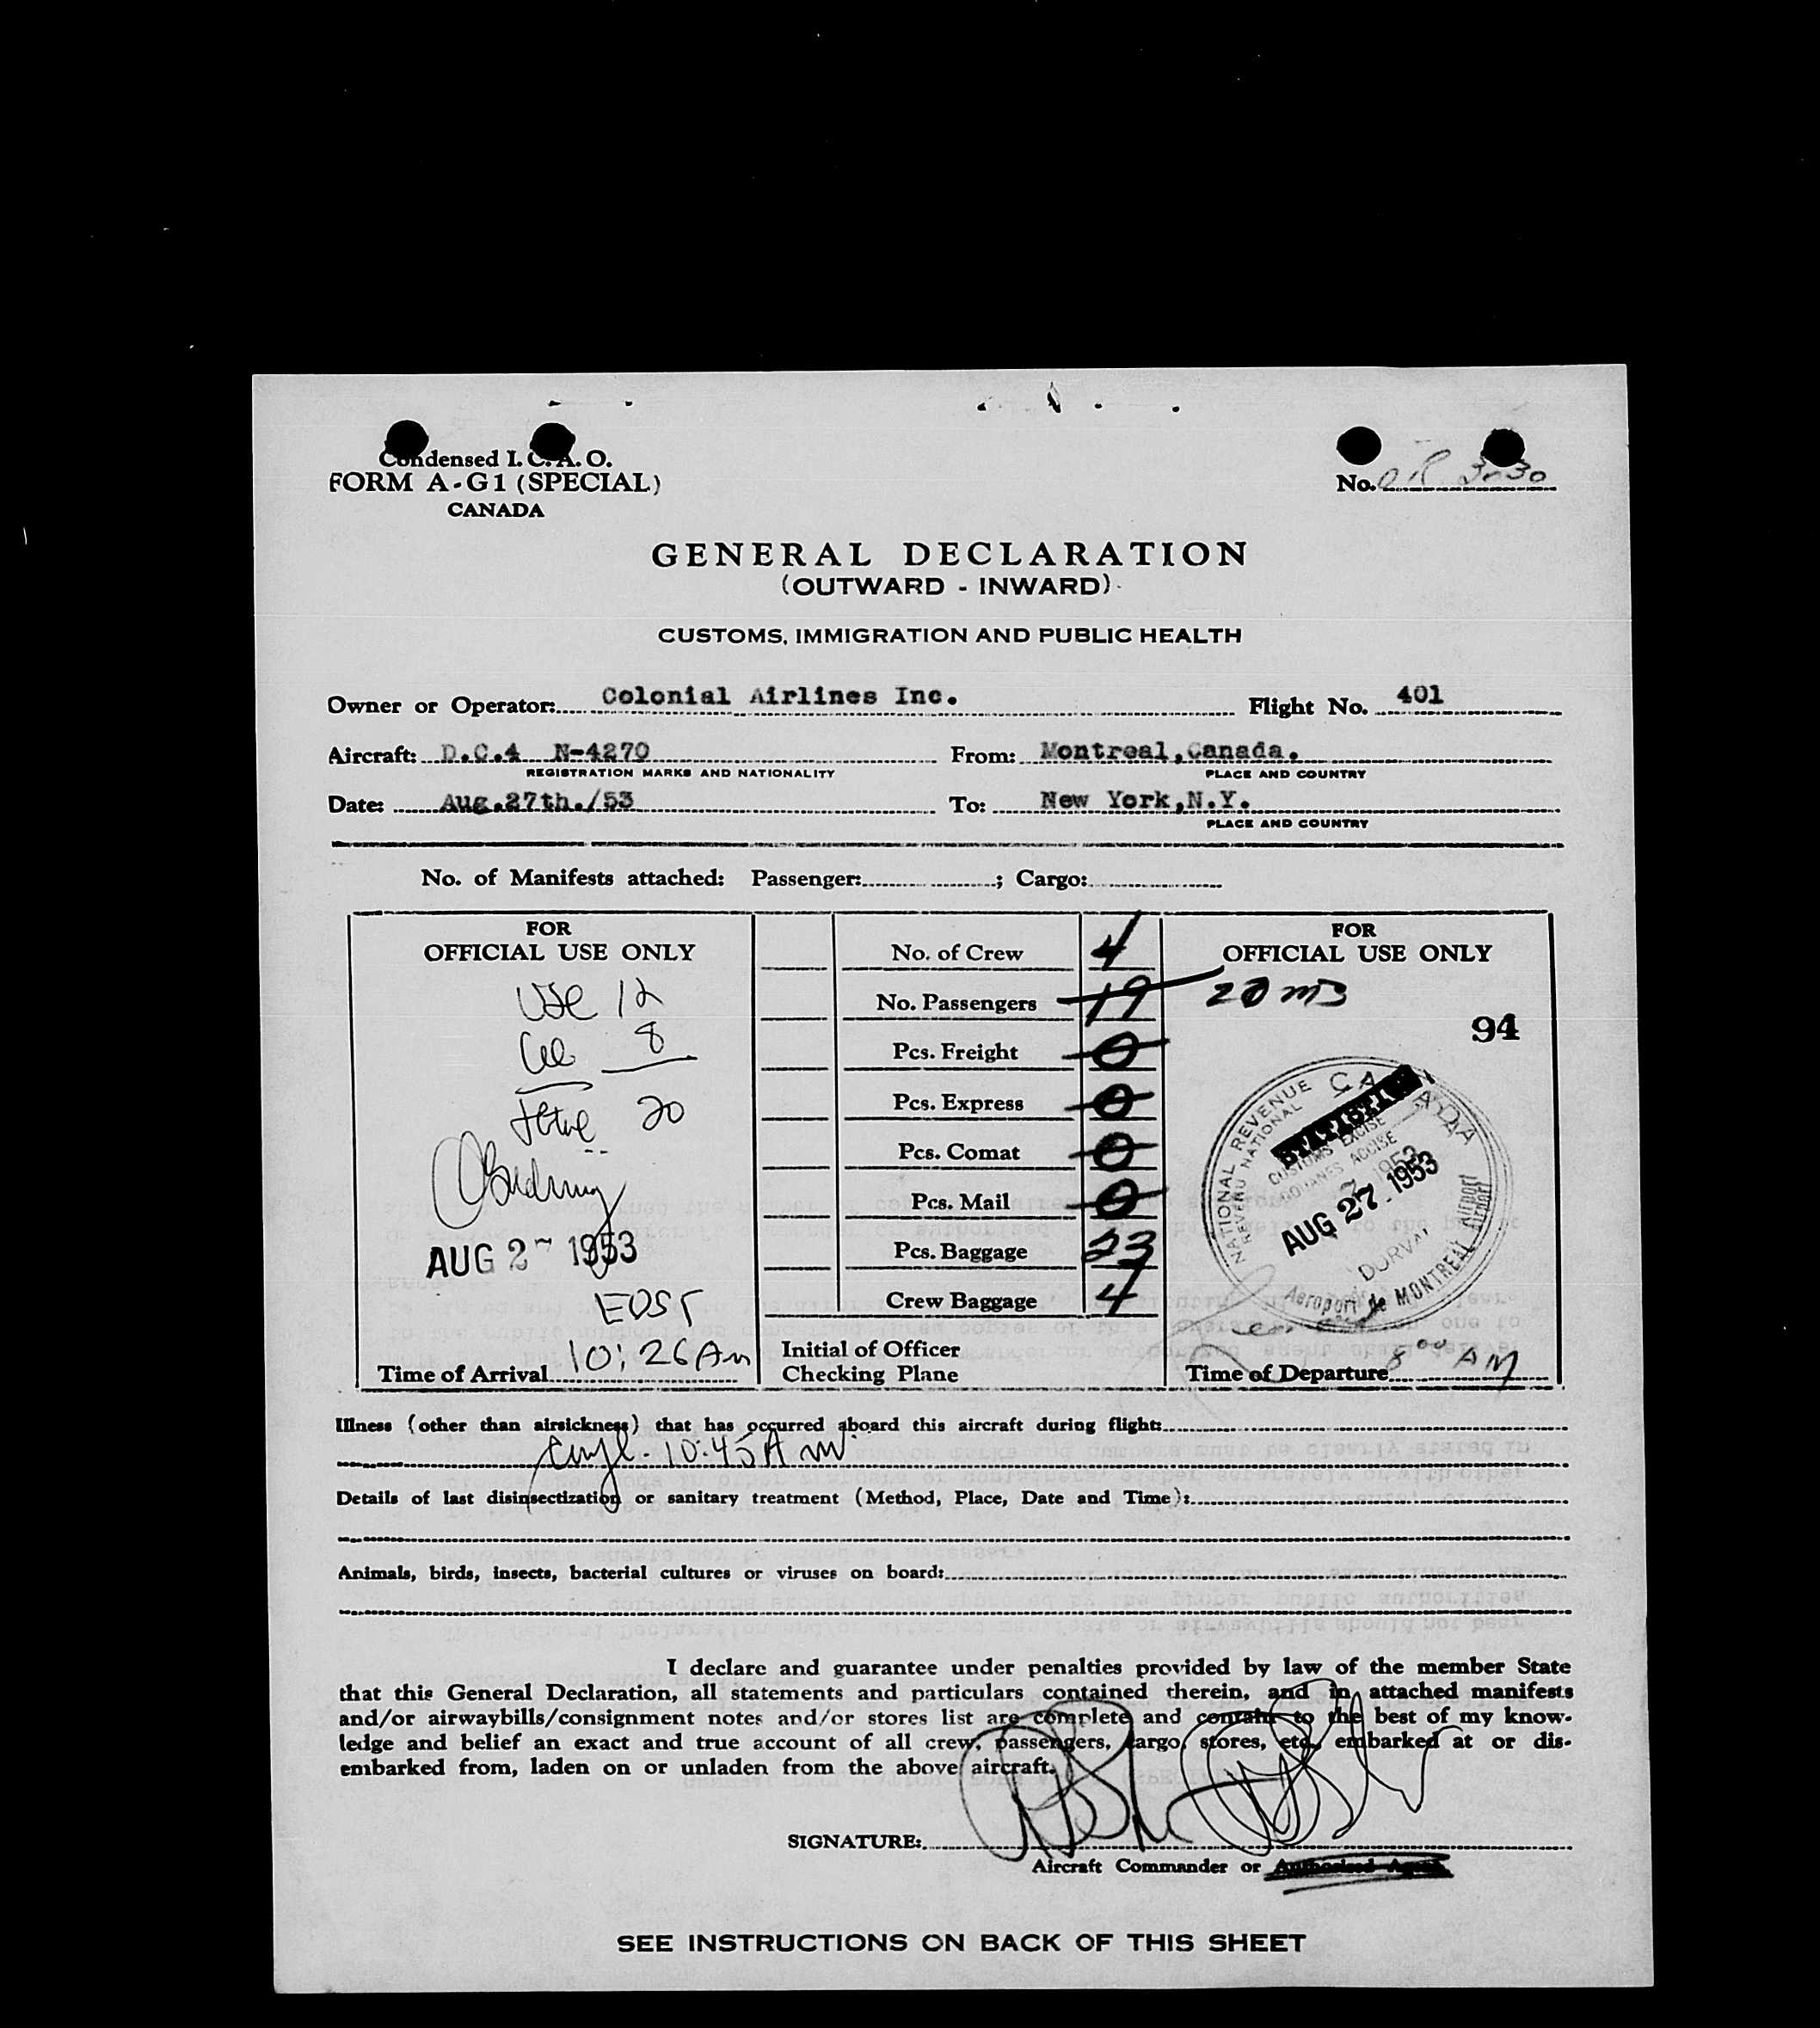 Condensed I.C.A.O.
FORM A-G1 (SPECIAL)
CANADA
No. 3030
GENERAL DECLARATION
(OUTWARD - INWARD)
CUSTOMS, IMMIGRATION AND PUBLIC HEALTH
Owner or Operator: Colonial Airlines Inc. Flight No. 401
Aircraft: D.C.4 N-4270 From: Montreal,Canada.
REGISTRATION MARKS AND NATIONALITY PLACE AND COUNTRY
Date: Aug.27th./53 To: New York,N.Y.
PLACE AND COUNTRY
No. of Manifests attached: Passenger: ; Cargo:
FOR
OFFICIAL USE ONLY
12
8
20
AUG 27 1953
Time of Arrival 10:26 Am
No. of Crew 4
No. Passengers 19
Pcs. Freight 0
Pcs. Express 0
Pcs. Comat 0
Pcs. Mail 0
Pcs. Baggage 23
Crew Baggage 4
Initial of Officer
Checking Plane
FOR
OFFICIAL USE ONLY
20
94
CANADA
NATIONAL REVENUE
REVENU NATIONAL
CUSTOMS EXCISE
DOUANES ACCISE
AUG 27 1953
DORVAL
Aeroport de MONTREAL Airport
Time of Departure 8 00 AM
Illness (other than airsickness) that has occurred aboard this aircraft during flight:
10:45 Am
Details of last disinsectization or sanitary treatment (Method, Place, Date and Time):
Animals, birds, insects, bacterial cultures or viruses on board:
I declare and guarantee under penalties provided by law of the member State
that this General Declaration, all statements and particulars contained therein, and in attached manifests
and/or airwaybills/consignment notes and/or stores list are complete and contain to the best of my know-
ledge and belief an exact and true account of all crew, passengers, cargo, stores, etc. embarked at or dis-
embarked from, laden on or unladen from the above aircraft.
SIGNATURE:
Aircraft Commander or Authorised Agent
SEE INSTRUCTIONS ON BACK OF THIS SHEET